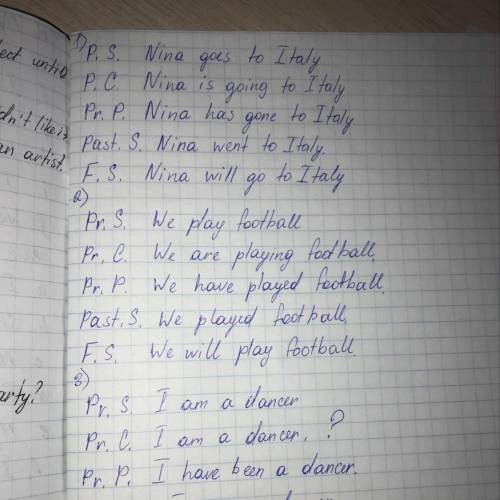 1)
P. S. Nina goes to Italy
P. C. Nina is going to Italy
Pr. P. Nina has gone to Italy
Past. S. Nina went to Italy.
F. S. Nina will go to Italy
2)
Pr. S. We play football
Pr. C. We are playing football.
Pr. P. We have played football.
Past. S. We played football.
F. S. We will play football.
3)
Pr. S. I am a dancer
Pr. C. I am a dancer. ?
Pr. P. I have been a dancer.
an artist.
arty?